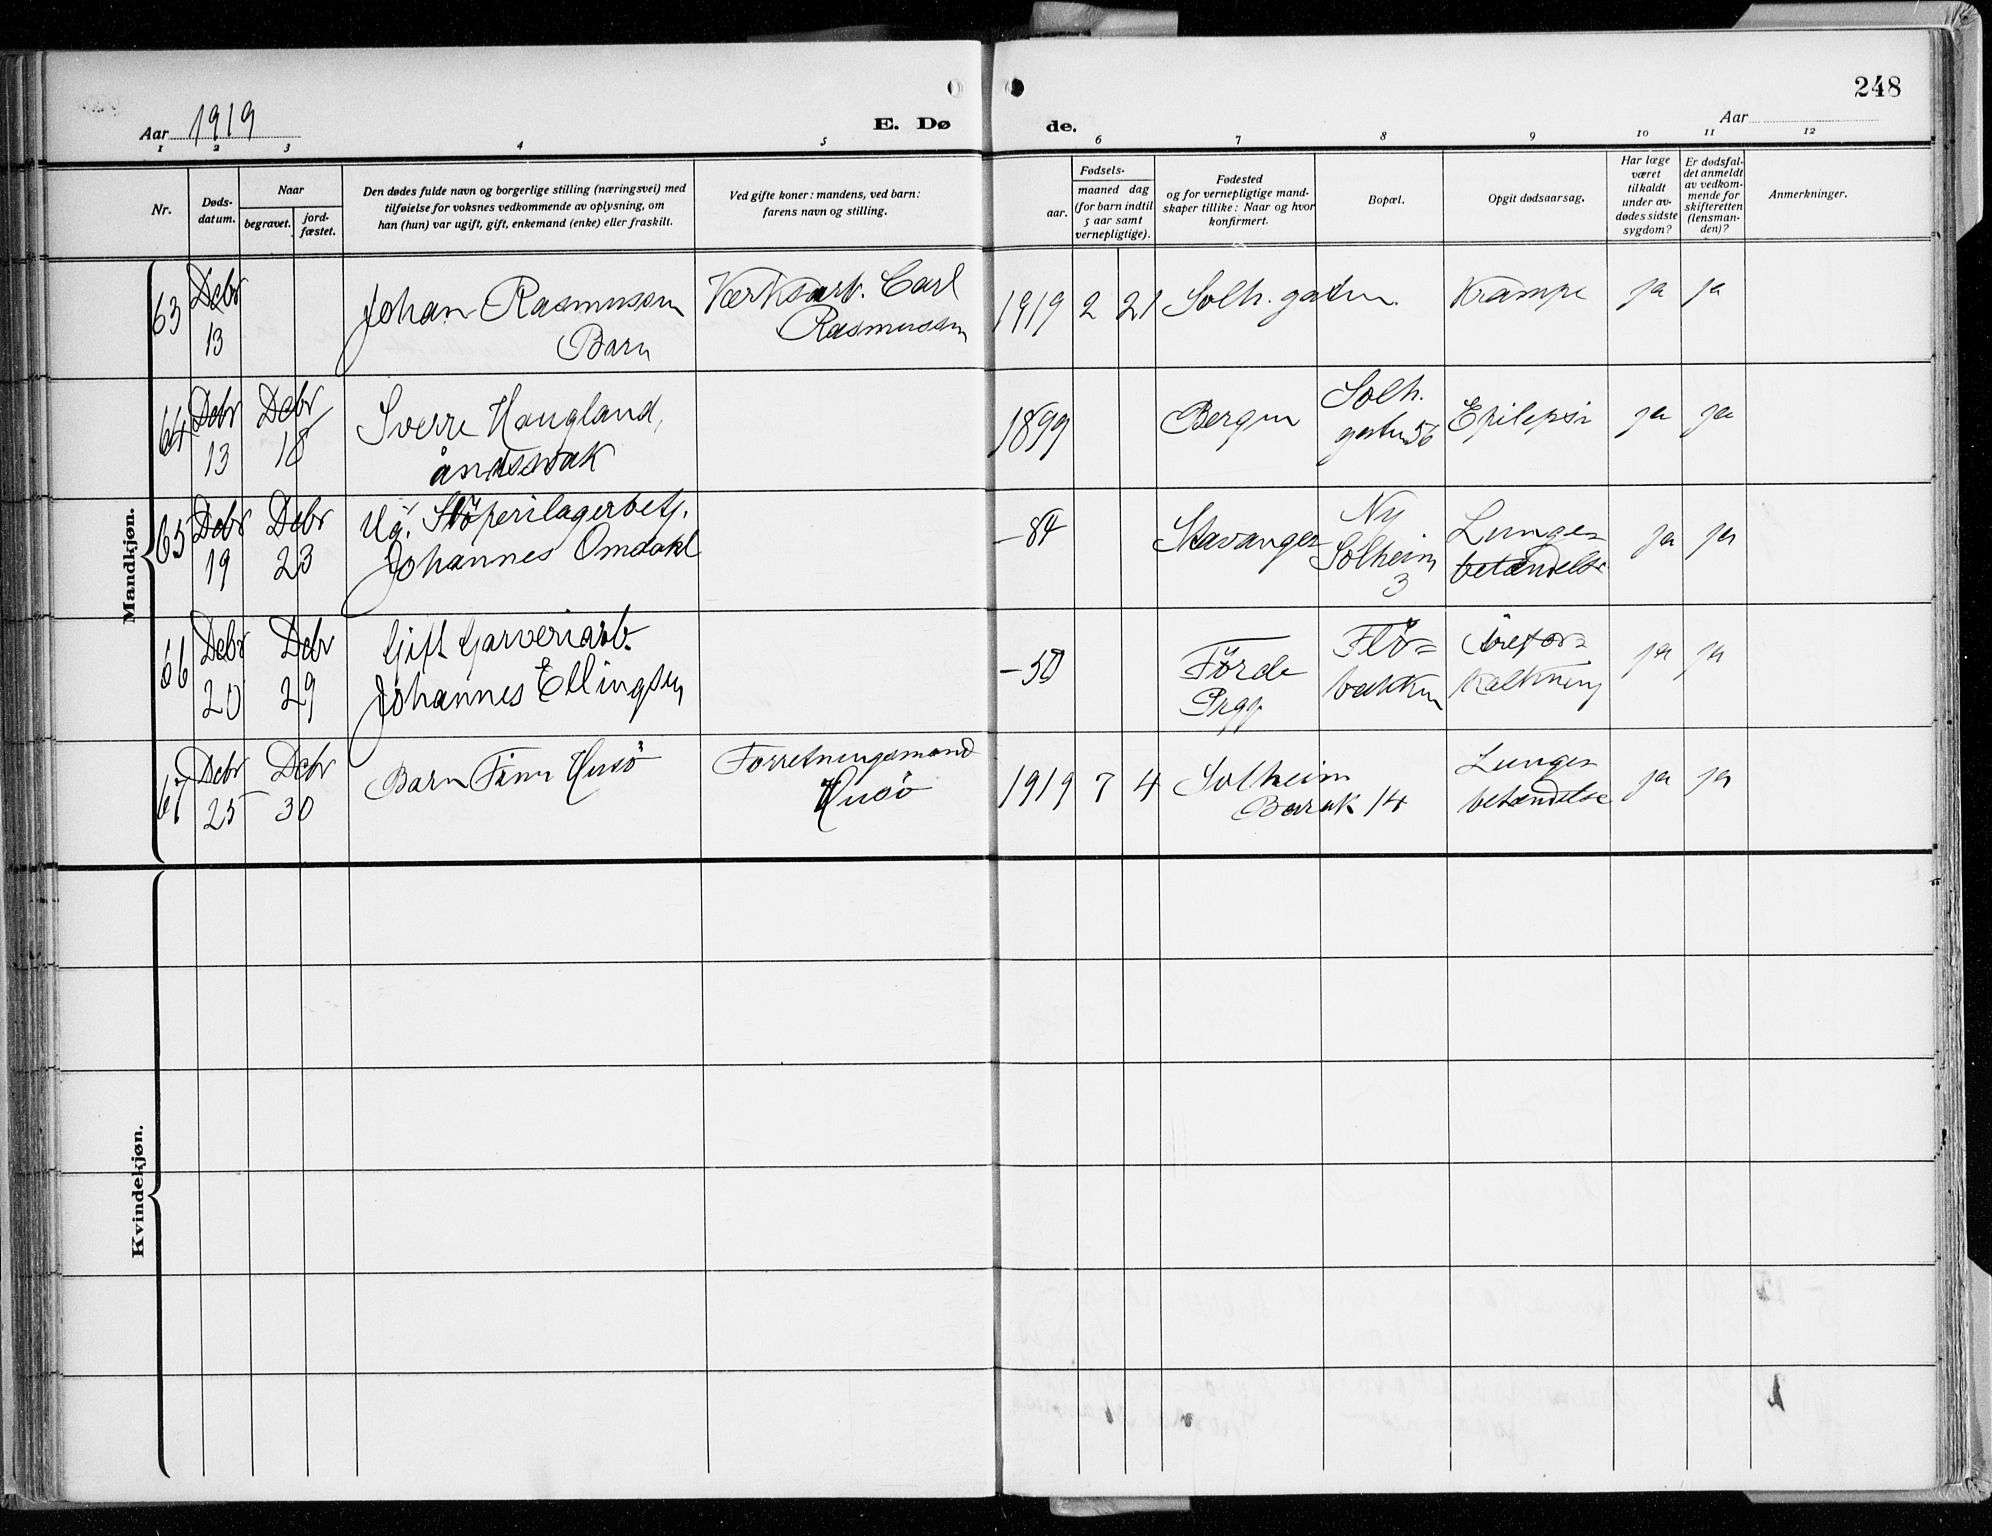 248
Aar 1919
E. Døde.
Aar
1 2 3 4 5 6 7 8 9 10 11 12
Nr.
Dødsdatum.
Naar
begravet.
jordfæstet.
Den dødes fulde navn og borgerlige stilling (næringsvei) med
tilføielse for voksnes vedkommende av oplysning, om
han (hun) var ugift, gift, enkemand (enke) eller fraskilt.
Ved gifte koner: mandens, ved barn:
farens navn og stilling.
Fødsels-
aar.
maaned dag
(for barn indtil
5 aar samt
vernepligtige).
Fødested
og for vernepligtige mand-
skaper tillike: Naar og hvor
konfirmert.
Bopæl.
Opgit dødsaarsag.
Har læge
været
tilkaldt
under av-
dødes sidste
sygdom?
Er dødsfal-
det anmeldt
av vedkom-
mende for
skifteretten
(lensman-
den)?
Anmerkninger.
Mandkjøn.
63 Debr 13 Johan Rasmussen Barn Værksarb. Carl Rasmussen 1919 2 21 Solh. gaten. Krampe ja ja
64 Debr 13 Debr 18 Sverre Haugland, åndssvak 1899 Bergen Solh. gaten 56 Epilepsi ja ja
65 Debr 19 Debr 23 Ug. Støperilagerbetj. Johannes Omdahl -84 Stavanger Ny Solheim 3 Lunge= betændelse ja ja
66 Debr 20 Debr 29 Gift Garveriarb. Johannes Ellingsen -50 Førde Prgj Flø= bakken Årefor= kalkning ja ja
67 Debr 25 Debr 30 Barn Finn Husö Forretningsmand Husö 1919 7 4 Solheim Barak 14 Lunge= betændelse ja ja
Kvindekjøn.